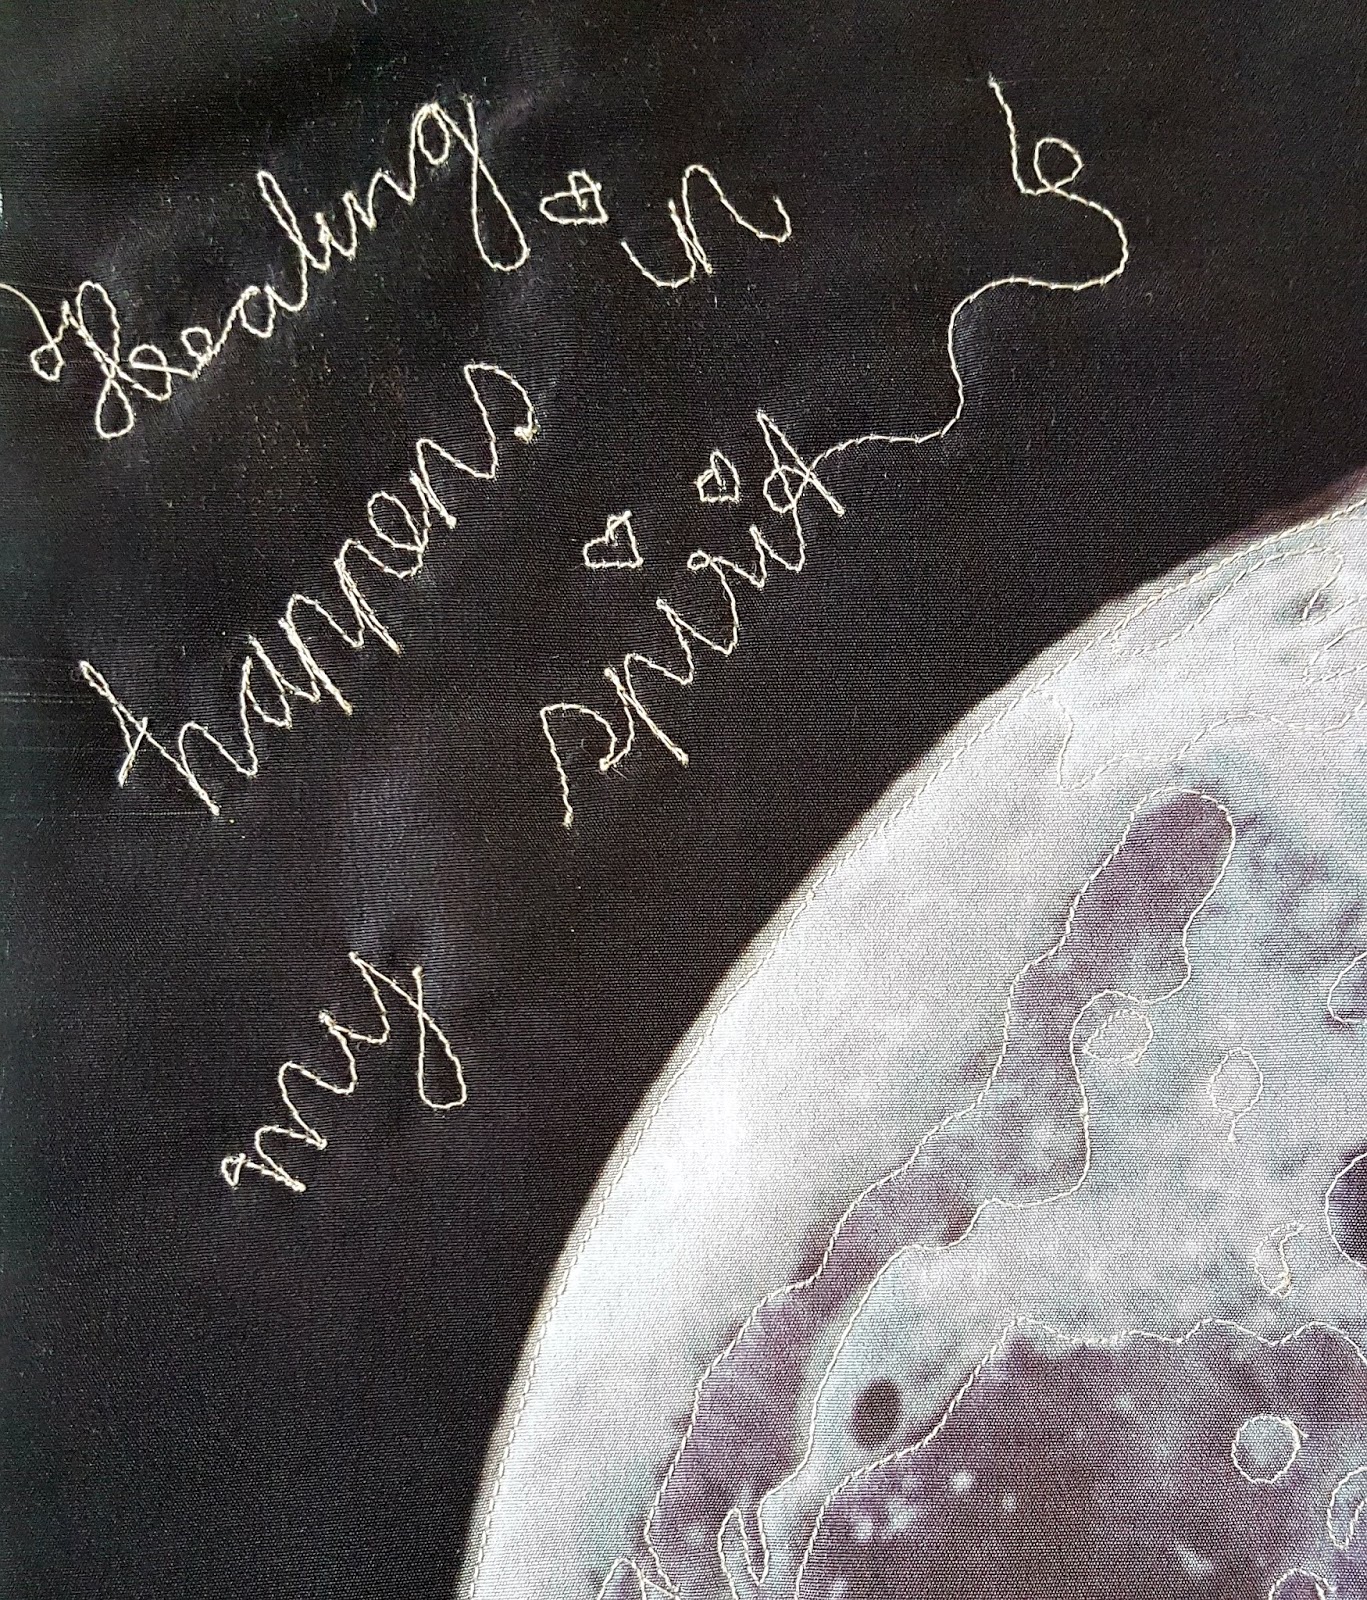 Healing
happens in
my spirit